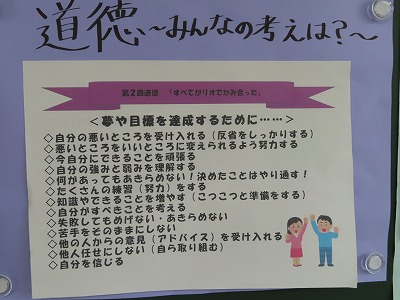 道徳～みんなの考えは？～
第2回道徳 「すべてがリオでかみ合った」
＜夢や目標を達成するために……＞
◇自分の悪いところを受け入れる（反省をしっかりする）
◇悪いところをいいところに変えられるよう努力する
◇今自分にできることを頑張る
◇自分の強みと弱みを理解する
◇何があってもあきらめない！決めたことはやり通す！
◇たくさんの練習（努力）をする
◇知識やできることを増やす（こつこつと準備をする）
◇自分がすべきことを考える
◇失敗してもめげない・あきらめない
◇苦手をそのままにしない
◇他の人からの意見（アドバイス）を受け入れる
◇他人任せにしない（自ら取り組む）
◇自分を信じる